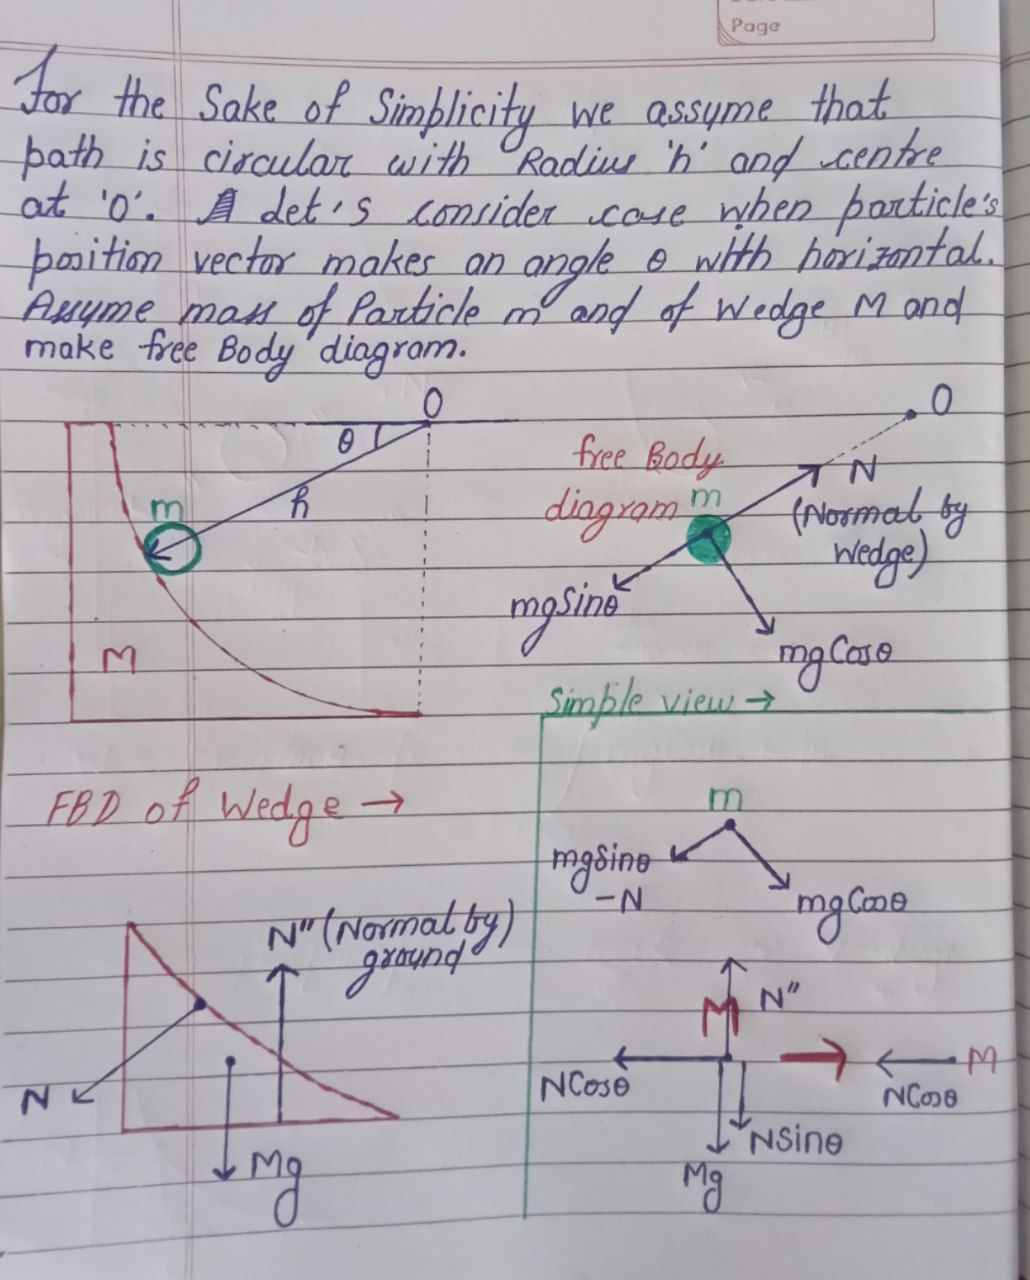 Page
For the Sake of Simplicity we assume that
path is circular with Radius 'h' and centre
at 'O'. Let's consider case when particle's
position vector makes an angle θ with horizontal.
Assume mass of Particle m and of Wedge M and
make free Body diagram.
O
θ
h
m
M
O
free Body
diagram
m
N
(Normal by
Wedge)
mgSinθ
mgCosθ
Simple view →
FBD of Wedge →
m
mgSinθ
-N
mgCosθ
N" (Normal by)
ground
N
Mg
N"
M
NCosθ
M
NCosθ
NSinθ
Mg